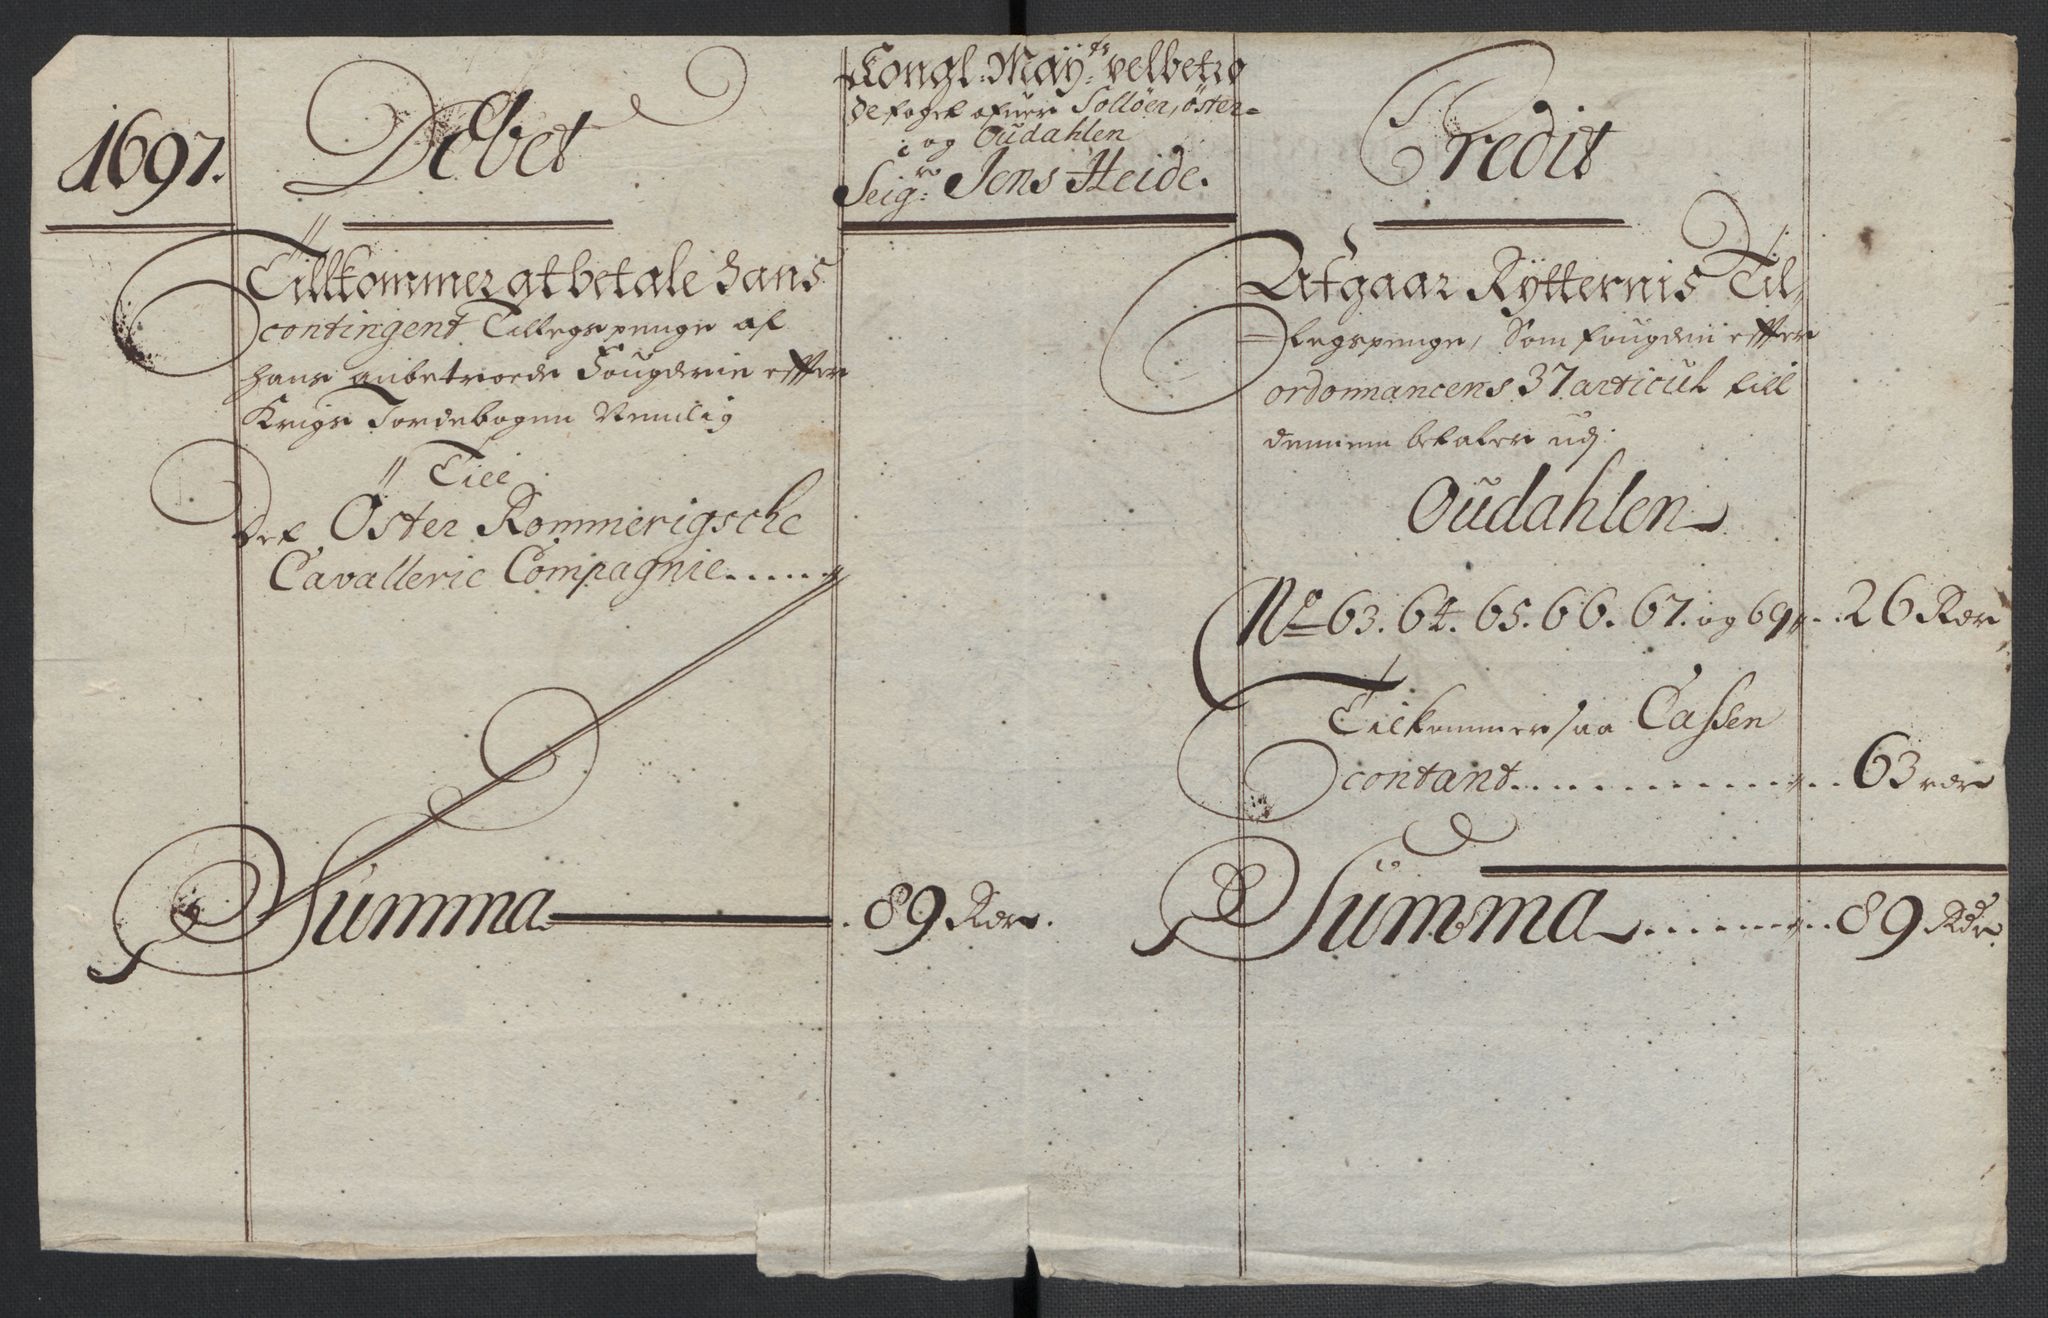 1697.
Debet
Kongl: Maÿ:ts velbetro
de foget ofuer Solløer, öster-
og Oudahlen
Seig:r Jens Heide.
Credit
Tillkommer at betale hans
contingent Tillegspenge af
hans anbetroede Fougderie effter
Krigs Jordebogen Nemlig
Till
Det Öster Rommerigsche
Cavallerie Compagnie
Summa 89 Rdr.
Afgaar Rÿtternis Til-
legspenge, Som fougden effter
ordonnancens 37 articul till
dennem betaler udj
Oudahlen
No 63. 64. 65. 66. 67. og 69 26 Rdr
Tilkommer saa Cassen
contant 63 rdr
Summa 89 Rdr